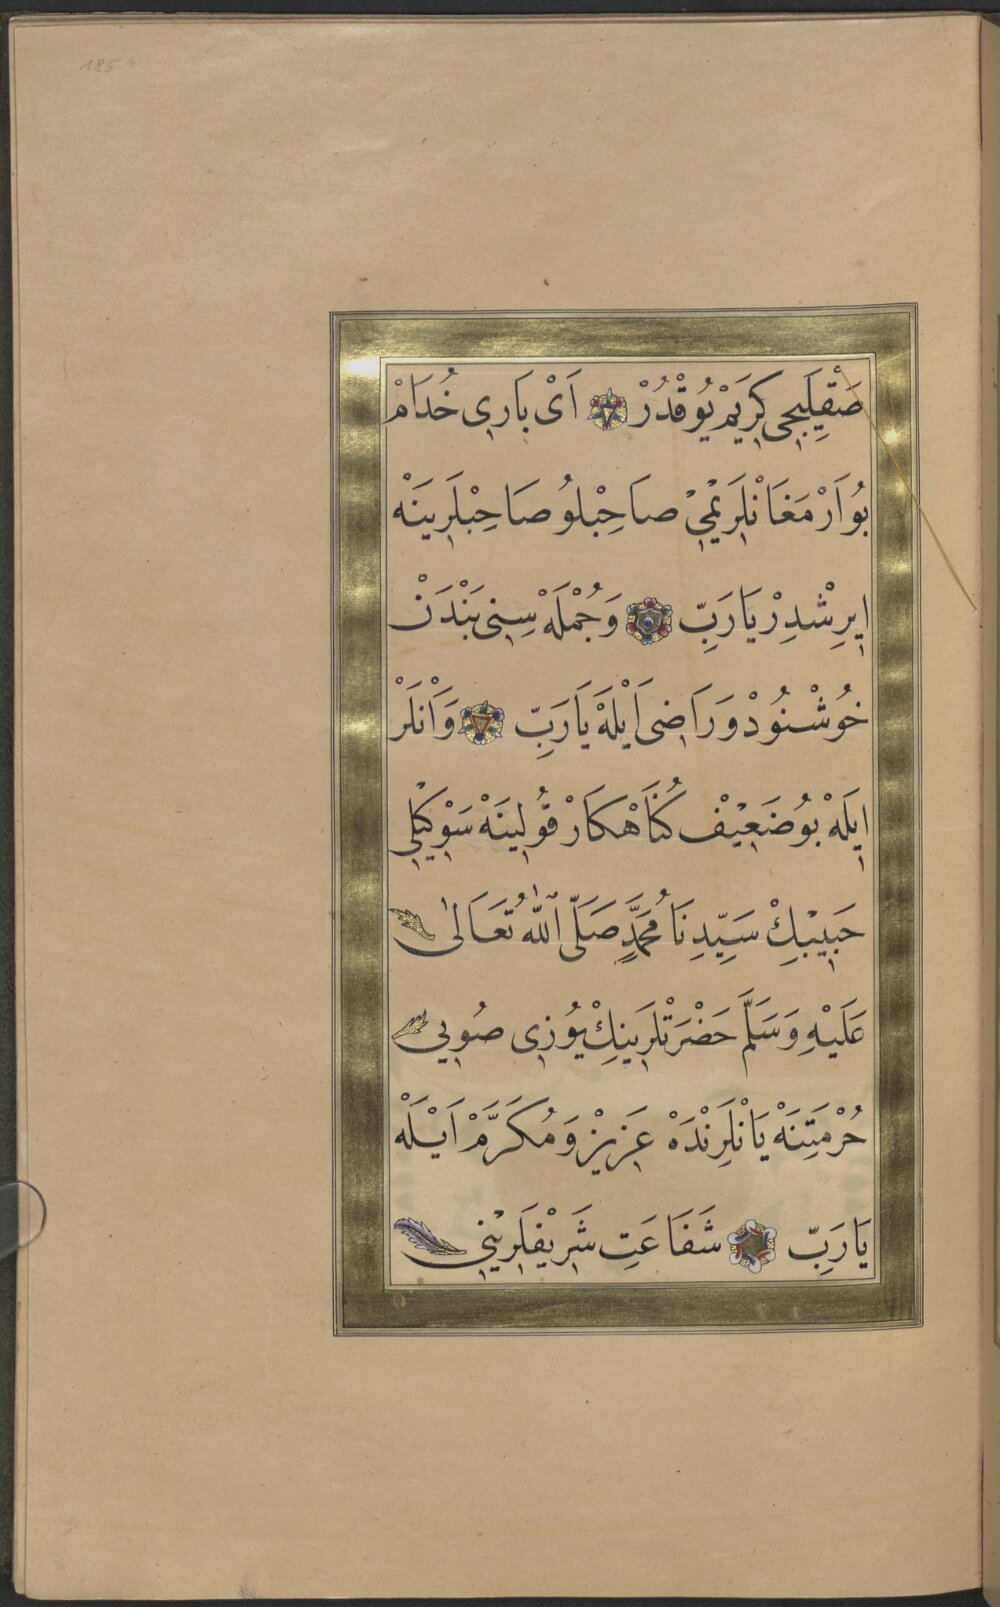 185
صَقِلَيِجِى كَرِيمْ يُوقْدُرْ اَىْ بَارِى خُدَامْ
بُو اَرْمَغَانْلَرِيْمِىْ صَاحِبْلُو صَاحِبْلَرِينَهْ
اِيرِشْدِرْ يَارَبِّ وَجُمْلَهْ سِنِى بَنْدَنْ
خُوشْنُودْ وَرَاضِى اَيْلَهْ يَارَبِّ وَاَنْلَرْ
اِيلَهْ بُو ضَعِيْف كُنَاهْكَارْ قُولِينَهْ سَوْكِيْلِى
حَبِيْبِكْ سَيِّدِنَا مُحَمَّدٍ صَلَّى اللّٰهُ تَعَالٰى
عَلَيْهِ وَسَلَّمْ حَضْرَتْلَرِينِكْ يُوزِى صُويِى
حُرْمَتِنَهْ يَانْلَرِنْدَهْ عَزِيزْ وَمُكَرَّمْ اَيْلَهْ
يَارَبِّ شَفَاعَتِ شَرِيْفَلَرِيْنِى